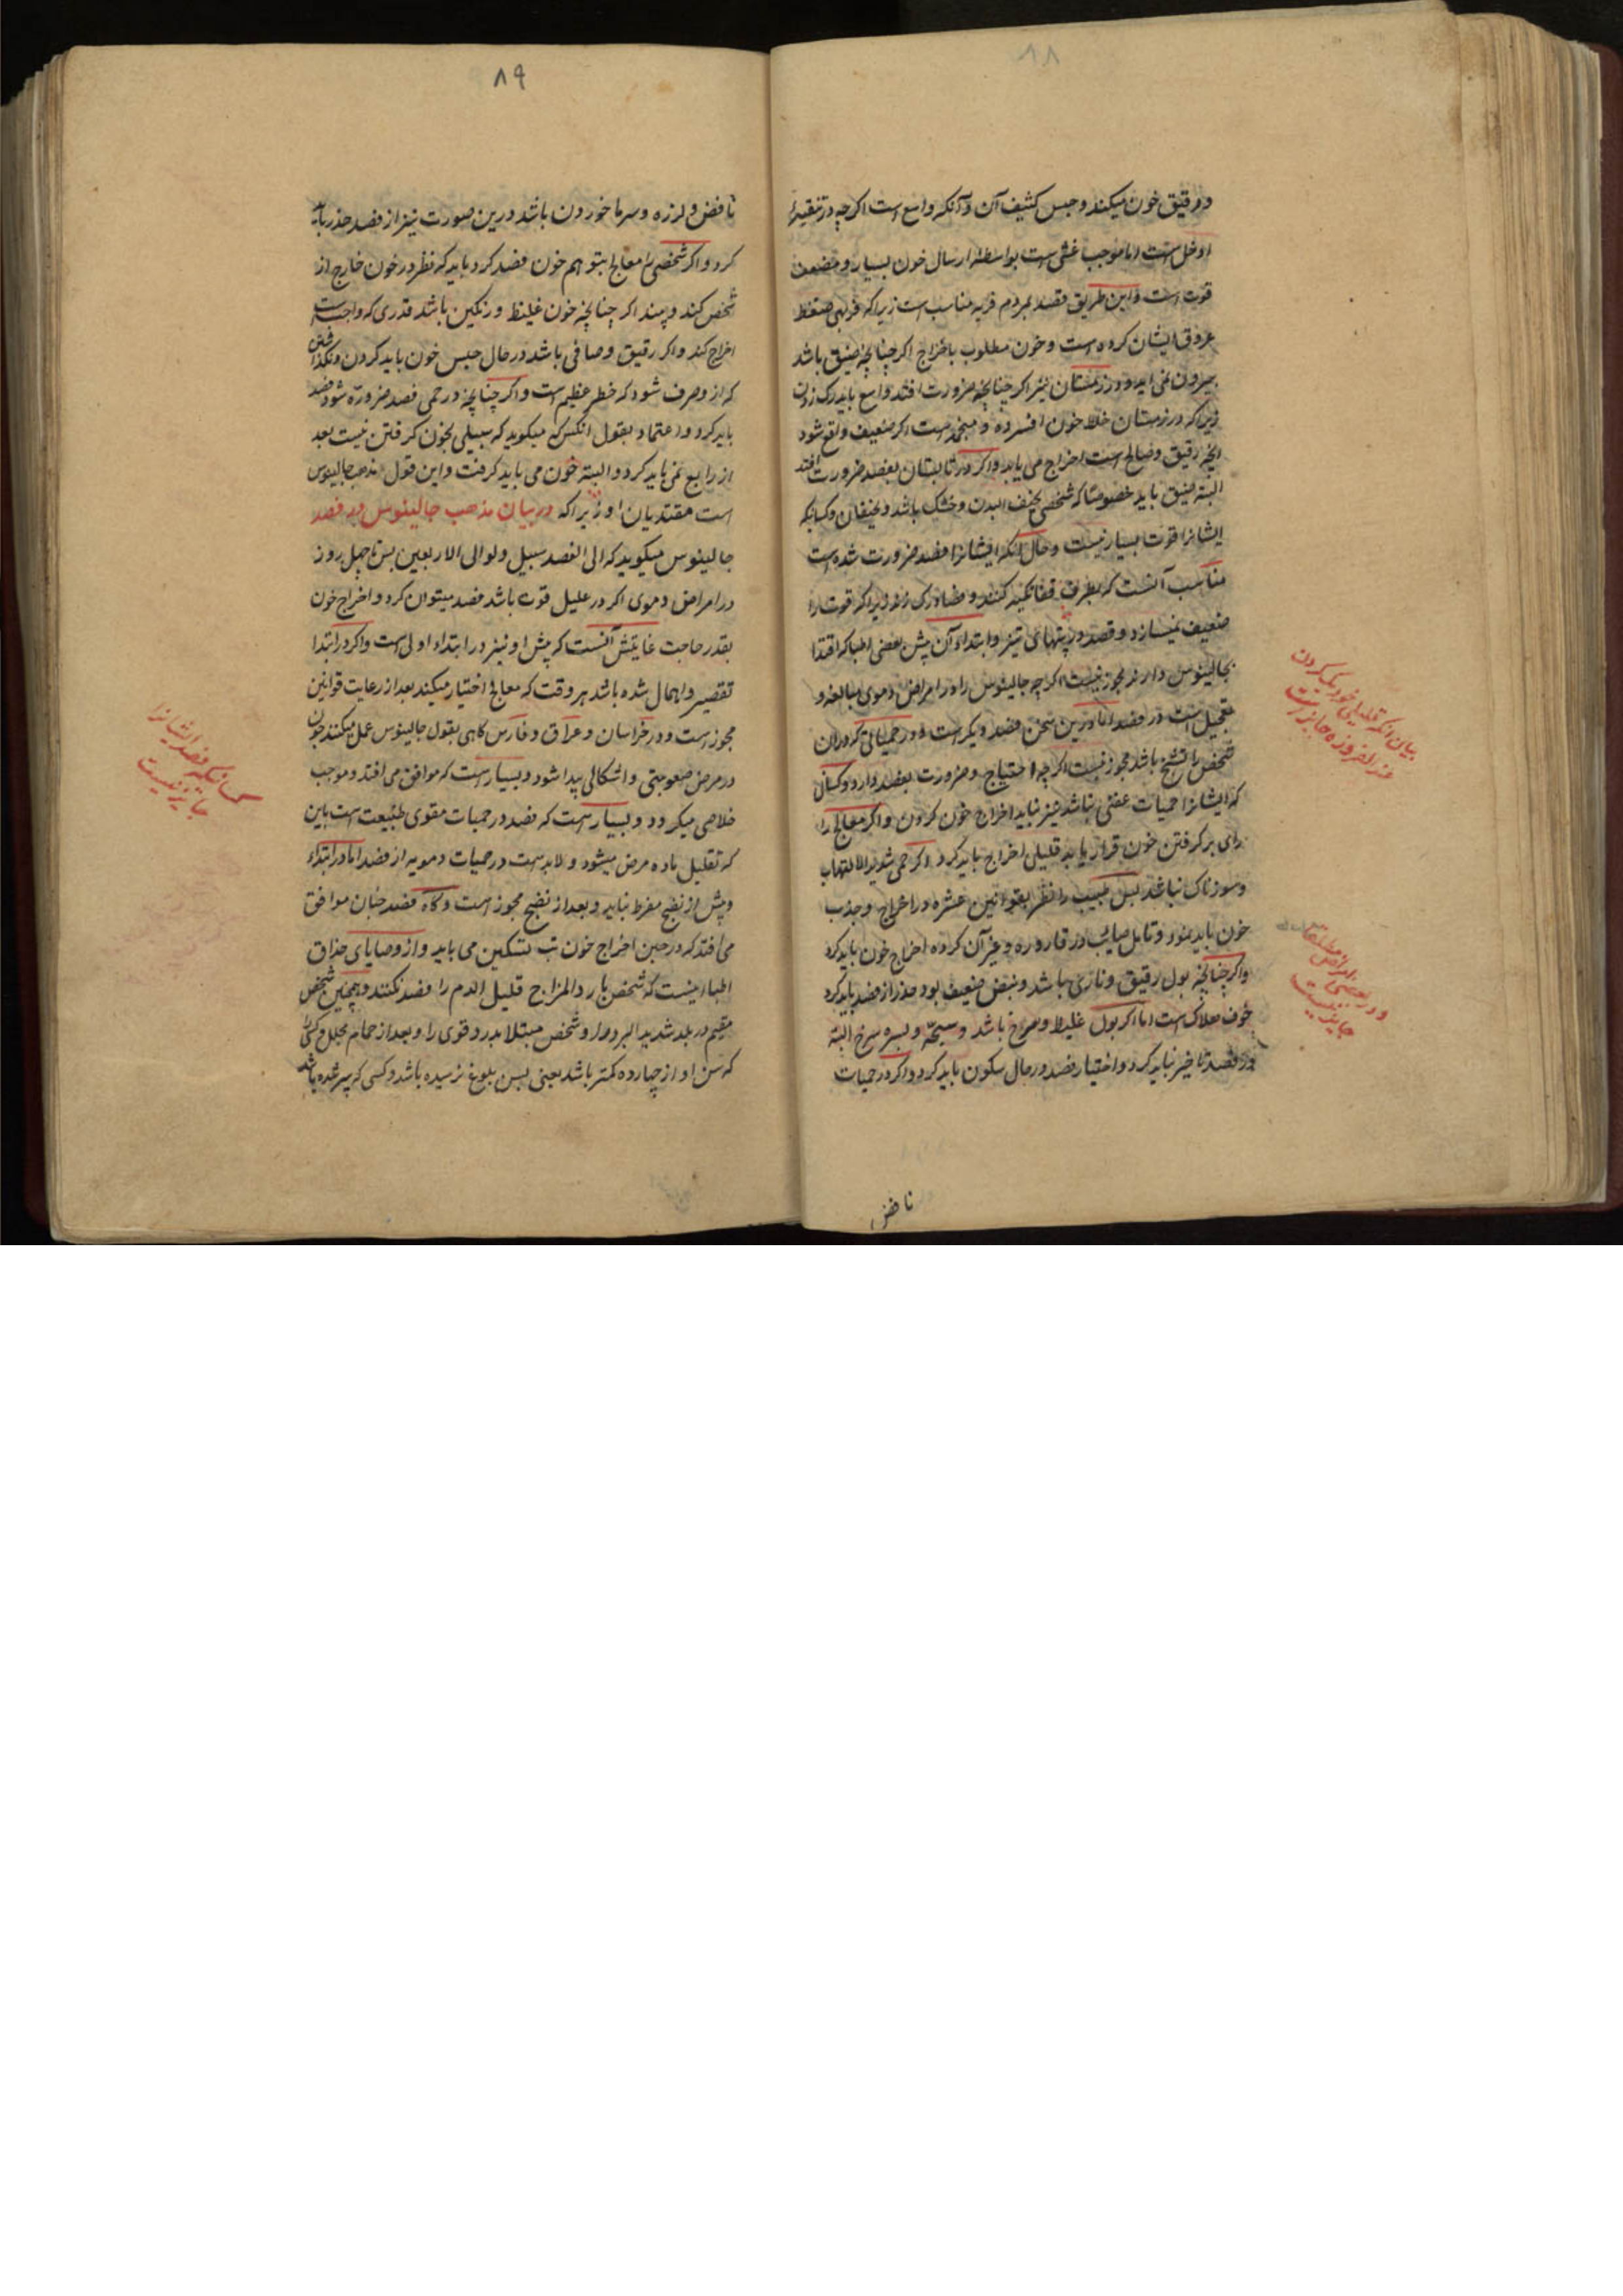 ۸۸
ورقیق خون میکند و حبس کثیف آن و آنکه واسع است اکرچه در تنقیهٔ
ادخل است اما موجب غشی است بواسطهٔ ارسال خون بسیار و مضعف
قوت است و این طریق فصد بمردم فربه مناسب است زیرا که فربهی ضغط
عروق ایشان کرده است و خون مطلوب باخراج اکر چنانچه ضیق باشد
بیرون نمی اید و در زمستان نیز اکر چنانچه ضرورت افتد واسع باید رک زدن
زیرا که در زمستان خلا خون افسرده و منجمد است اکر ضعیف واقع شود
انچه رقیق و صالح است اخراج می یابد و اکر در تابستان بفصد ضرورت افتد
البته ضیق باید خصوصا که شخصی نحیف البدن و خشک باشد و نحیفان و کسانیکه
ایشانرا قوت بسیار نیست و حال آنکه ایشانرا فصد ضرورت شده است
مناسب آنست که بطرف قفا تکیه کنند و فصاد رک زند زیرا که قوت را
ضعیف نمیسازد و فصد در تپهای تیز و ابتداء آن پیش بعضی اطبا که اقتدا
بجالینوس دارند مجوز نیست اکرچه جالینوس را در امراض دموی مبالغه و
تعجیل است در فصد اما درین سخن فصد دیکر است و در حمیاتی که در ان
شخص را تشنج باشد مجوز نیست اکرچه احتیاج و ضرورت بفصد دارد و کسانی
که ایشانرا حمیات عفنی باشد نیز نباید اخراج خون کردن و اکر معالج را
رای بر کرفتن خون قرار یابد قلیلی اخراج باید کرد و اکر حمی شدید الالتهاب
و سوزناک نباشد پس طبیب را نظر بقوانین عشره در اخراج و جذب
خون باید نمود و تامل صایب در قاروره و غیر آن کرده اخراج خون باید کرد
و اکر چنانچه بول رقیق و ناری باشد و نبض ضعیف بود حذر از فصد باید کرد
خوف هلاک است اما اکر بول غلیظ و سرخ باشد و سحنه و بشره سرخ البته
در فصد تاخیر نباید کرد و اختیار فصد در حال سکون باید کرد و اکر در حمیات
نافض
بیان انکه قلیلی خون کم کردن
عند الضروره جایز است
و در بعضی امراض مطلقا
جایز نیست
۸۹
نافض و لرزه و سرما خوردن باشد درین صورت نیز از فصد حذر باید
کرد و اکر شخصی را معالج بتوهم خون فصد کرد باید که نظر در خون خارج از
شخص کند و بیند اکر چنانچه خون غلیظ و رنکین باشد قدری که واجب است
اخراج کند و اکر رقیق و صافی باشد در حال حبس خون باید کردن و نکذاشتن
که ازو صرف شود که خطر عظیم است و اکر چنانچه در حمی فصد ضرورة شود فصد
باید کرد و اعتماد بقول انکس که میکوید که سبیلی بخون کرفتن نیست بعد
از رابع نمی باید کرد و البته خون می باید کرفت و این قول مذهب جالینوس
است مقتدیان او زیرا که در بیان مذهب جالینوس در فصد
جالینوس میکوید که الی الفصد سبیل ولو الی الاربعین پس تا چهل روز
در امراض دموی اکر در علیل قوت باشد فصد میتوان کرد و اخراج خون
بقدر حاجت غایتش آنست که پیش او نیز در ابتداء اولی است و اکر در ابتدا
تقصیر و اهمال شده باشد هر وقت که معالج اختیار میکند بعد از رعایت قوانین
مجوز است و در خراسان و عراق و فارس کاهی بقول جالینوس عمل میکنند چون
در مرض صعوبتی و اشکالی پیدا شود و بسیار است که موافق می افتد و موجب
خلاصی میکردد و بسیار است که فصد در حمیات مقوی طبیعت است باین
که تقلیل ماده مرض میشود و لابد است در حمیات دمویه از فصد اما در ابتداء
و پیش از نضج مفرط نباید و بعد از نضج مجوز است و کاه فصد چنان موافق
می افتد که در حین اخراج خون تب تسکین می یابد و از وصایای حذاق
اطبا اینست که شخص بارد المزاج قلیل الدم را فصد نکنند و همچنین شخص
مقیم در بلد شدید البرد را و شخص مبتلا بدرد قوی را و بعد از حمام محلل و کسی
که سن او از چهارده کمتر باشد یعنی بسن بلوغ نرسیده باشد و کسی که پیر شده باشد
کسانیکه فصد ایشانرا
جایز نیست